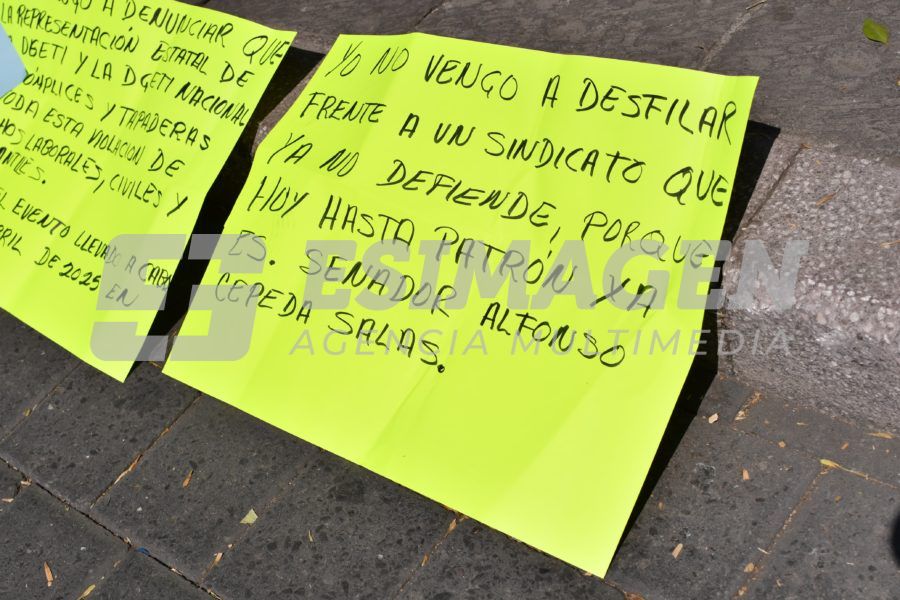 A DENUNCIAR QUE
LA REPRESENTACIÓN ESTATAL DE
DGETI Y LA DGETI NACIONAL
CÓMPLICES Y TAPADERAS
TODA ESTA VIOLACION DE
LABORALES, CIVILES Y
EL EVENTO LLEVADO A CABO
DE 2025 EN
YO NO VENGO A DESFILAR
FRENTE A UN SINDICATO QUE
YA NO DEFIENDE, PORQUE
HOY HASTA PATRÓN YA
ES. SENADOR ALFONSO
CEPEDA SALAS.
ESIMAGEN
AGENCIA MULTIMEDIA